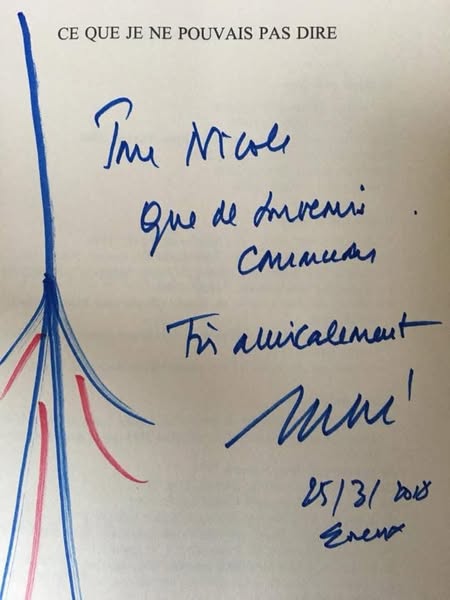 CE QUE JE NE POUVAIS PAS DIRE
Pour Nicole
Que de souvenirs
communs
Très amicalement
25/3/2018